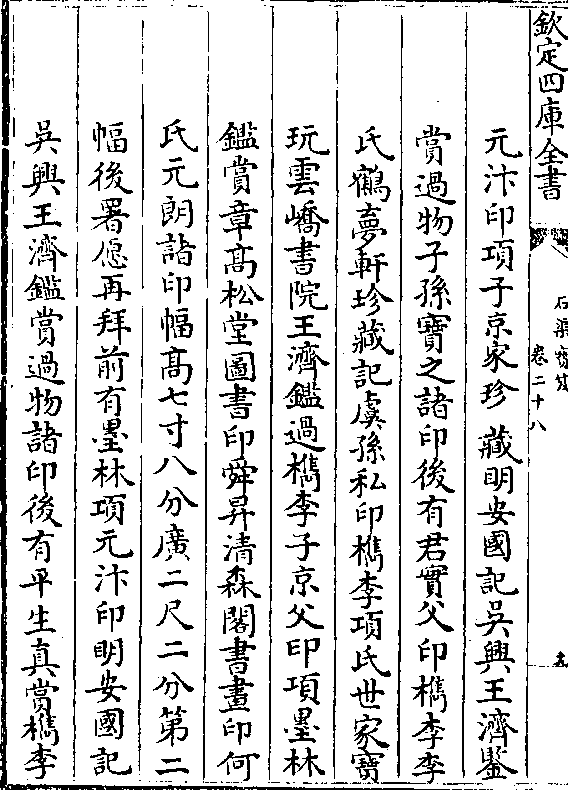 欽定四庫全書
卷二十八
元汴印項子京家珍藏明安國記吳興王濟鑒
賞過物子孫寶之諸印後有君實父印檇李李
氏鶴夢軒珍藏記虞孫私印檇李項氏世家寶
玩雲嶠書院王濟鑑過檇李子京父印項墨林
鑑賞章髙松堂圖書印舜昇清森閣書畫印何
氏元朗諸印幅髙七寸八分廣二尺二分第二
幅後署偲再拜前有墨林項元汴印明安國記
吳興王濟鑑賞過物諸印後有平生真賞檇李